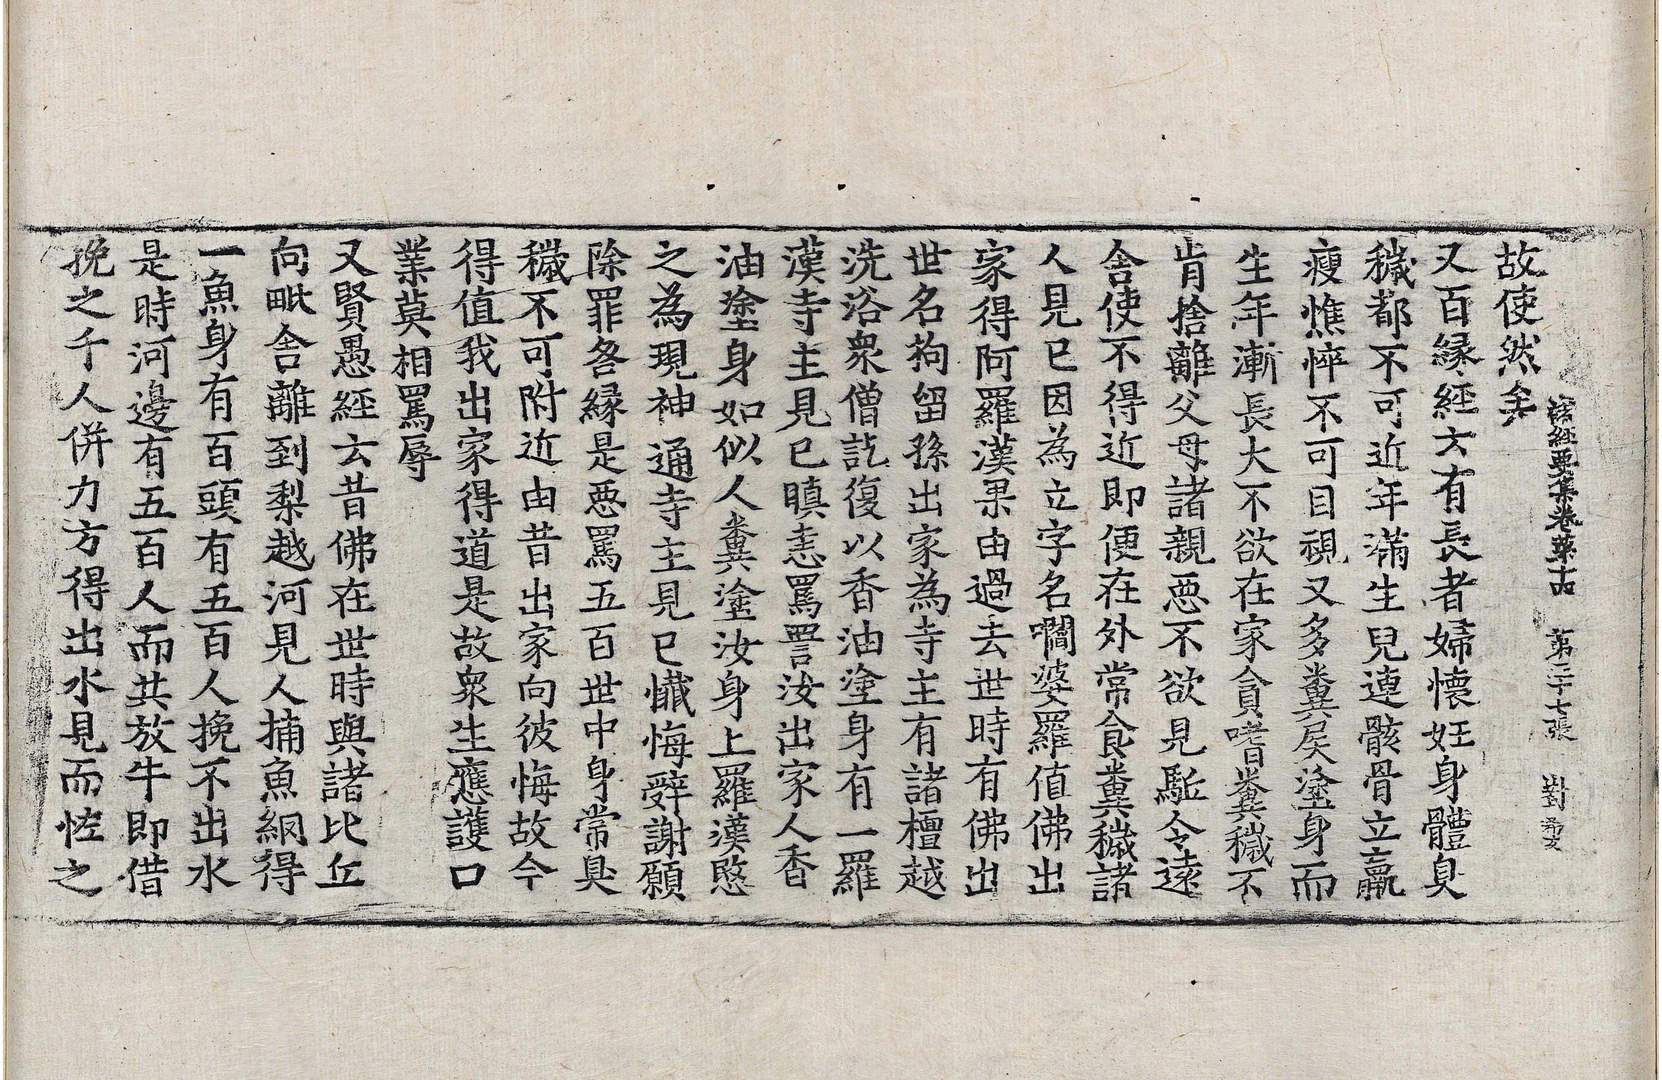 諸經要集卷第十四　第三十七張　對
故使然矣
又百縁經云有長者婦懷妊身體臭
穢都不可近年滿生兒連骸骨立羸
瘦憔悴不可目視又多糞屎塗身而
生年漸長大不欲在家貪嗜糞穢不
肯捨離父母諸親惡不欲見駈令遠
舍使不得近即便在外常食糞穢諸
人見已因為立字名嚪婆羅值佛出
家得阿羅漢果由過去世時有佛出
世名拘留孫出家為寺主有諸檀越
洗浴衆僧訖復以香油塗身有一羅
漢寺主見已瞋恚罵詈汝出家人香
油塗身如似人糞塗汝身上羅漢愍
之為現神通寺主見已懺悔辭謝願
除罪咎縁是惡罵五百世中身常臭
穢不可附近由昔出家向彼悔故今
得值我出家得道是故衆生應護口
業莫相罵辱
又賢愚經云昔佛在世時與諸比丘
向毗舍離到梨越河見人捕魚網得
一魚身有百頭有五百人挽不出水
是時河邊有五百人而共放牛即借
挽之千人併力方得出水見而恠之